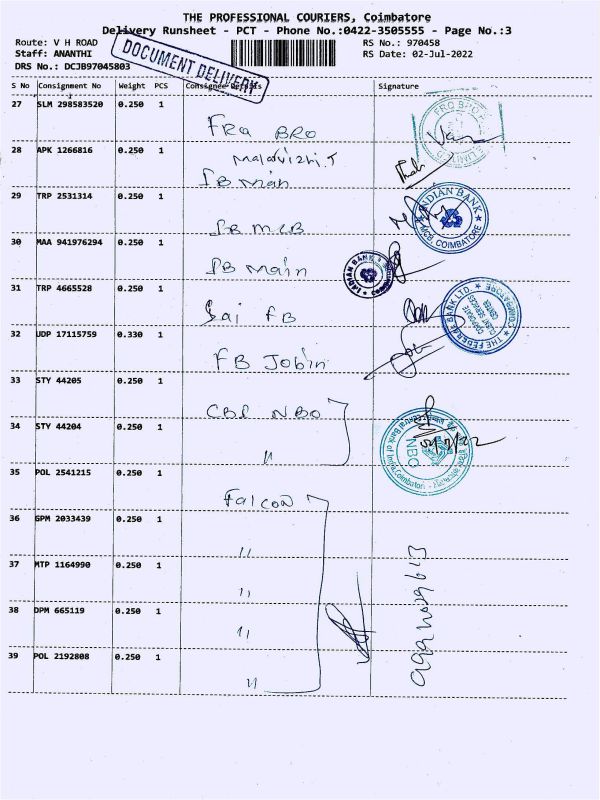 THE PROFESSIONAL COURIERS, Coimbatore
Delivery Runsheet - PCT - Phone No.:0422-3505555 - Page No.:3
Route: V H ROAD
RS No.: 970458
Staff: ANANTHI
RS Date: 02-Jul-2022
DRS No.: DCJB97045803
DOCUMENT DELIVERY
S No Consignment No Weight PCS Consignee Details Signature
27 SLM 298583520 0.250 1
FRA BRO
28 APK 1266816 0.250 1
Malarvizhi.T
IB Main
29 TRP 2531314 0.250 1
INDIAN BANK
MCB, COIMBATORE
IB MCB
30 MAA 941976294 0.250 1
IB Main
INDIAN BANK
31 TRP 4665528 0.250 1
Sai FB
THE FEDERAL BANK LTD.
CORPORATE
CLIENT SERVICES
CENTER
COIMBATORE
32 UDP 17115759 0.330 1
FB Jobin
33 STY 44205 0.250 1
CBI NBO
34 STY 44204 0.250 1
"
Central Bank of India, Coimbatore
NBO
35 POL 2541215 0.250 1
Falcon
36 GPM 2033439 0.250 1
"
37 MTP 1164990 0.250 1
"
38 DPM 665119 0.250 1
"
39 POL 2192808 0.250 1
"